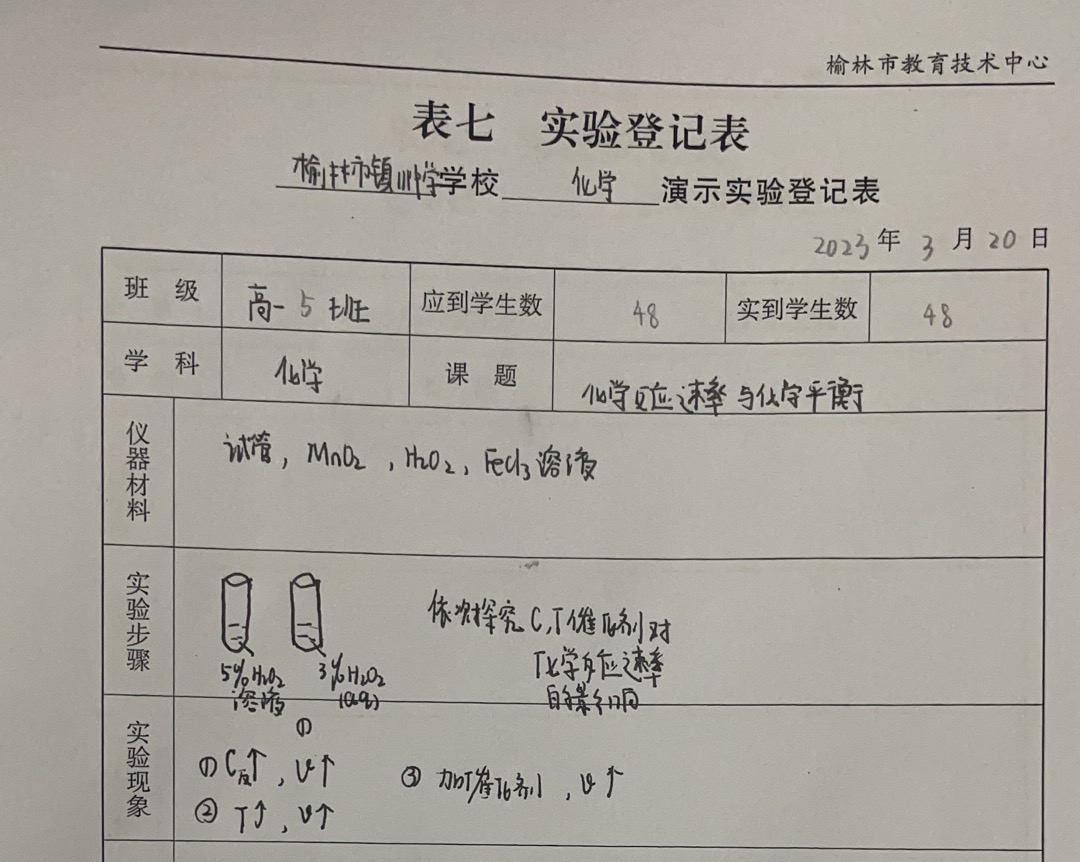 榆林市教育技术中心
表七 实验登记表
榆林市镇川中学学校 化学 演示实验登记表
2023年3月20日
班级 高一5班 应到学生数 48 实到学生数 48
学科 化学 课题 化学反应速率与化学平衡
仪器材料 试管, MnO₂, H₂O₂, FeCl₃溶液
实验步骤
5%H₂O₂
溶液
3%H₂O₂
(aq)
①
依次探究C,T催化剂对
化学反应速率
的影响
实验现象
① C反↑, v↑
② T↑, v↑
③ 加催化剂, v↑